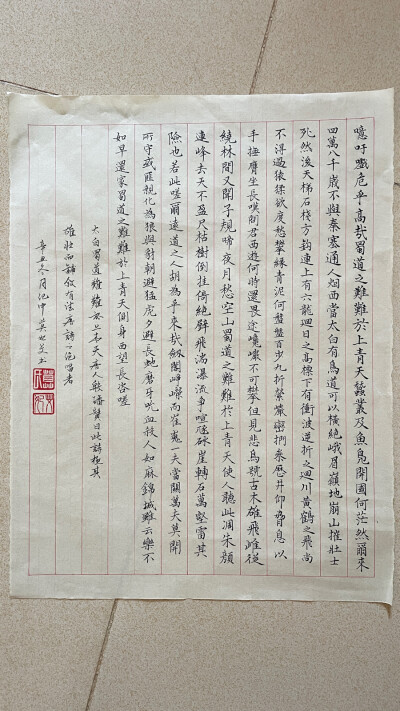 噫吁嚱危乎高哉蜀道之難難於上青天蠶叢及魚鳧開國何茫然爾來
四萬八千歲不與秦塞通人烟西當太白有鳥道可以橫絕峨眉巔地崩山摧壯士
死然後天梯石棧方鉤連上有六龍迴日之高標下有衝波逆折之迴川黃鶴之飛尚
不淂過猿猱欲度愁攀緣青泥何盤盤百步九折縈巖巒捫參歷井仰脅息以
手撫膺坐長嘆問君西遊何時還畏途巉巖不可攀但見悲鳥號古木雄飛雌從
繞林間又聞子規啼夜月愁空山蜀道之難難於上青天使人聽此凋朱顏
連峰去天不盈尺枯樹倒挂倚絕壁飛湍瀑流爭喧豗砯崖轉石萬壑雷其
險也若此嗟爾遠道之人胡為乎來哉劔閣崢嶸而崔嵬一夫當關萬夫莫開
所守或匪親化為狼與豺朝避猛虎夕避長蛇磨牙吮血殺人如麻錦城雖云樂不
如早還家蜀道之難難於上青天側身西望長咨嗟
太白蜀道難難於上青天唐人殷璠贊曰此詩極其
雄壯而鋪叙有法唐詩一絕唱者
辛丑冬月